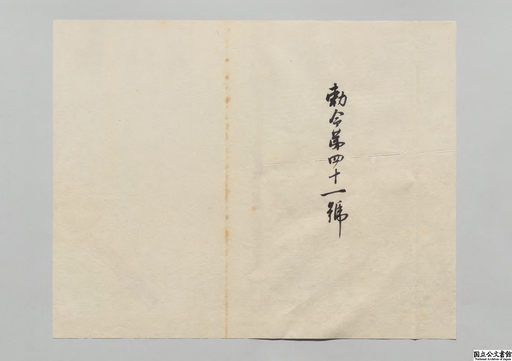 勅令第四十一號
国立公文書館
National Archives of Japan